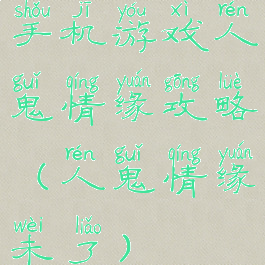 shǒu jī yóu xì rén
手机游戏人
guǐ qíng yuán gōng lüè
鬼情缘攻略
rén guǐ qíng yuán
（人鬼情缘
wèi liǎo
未了）